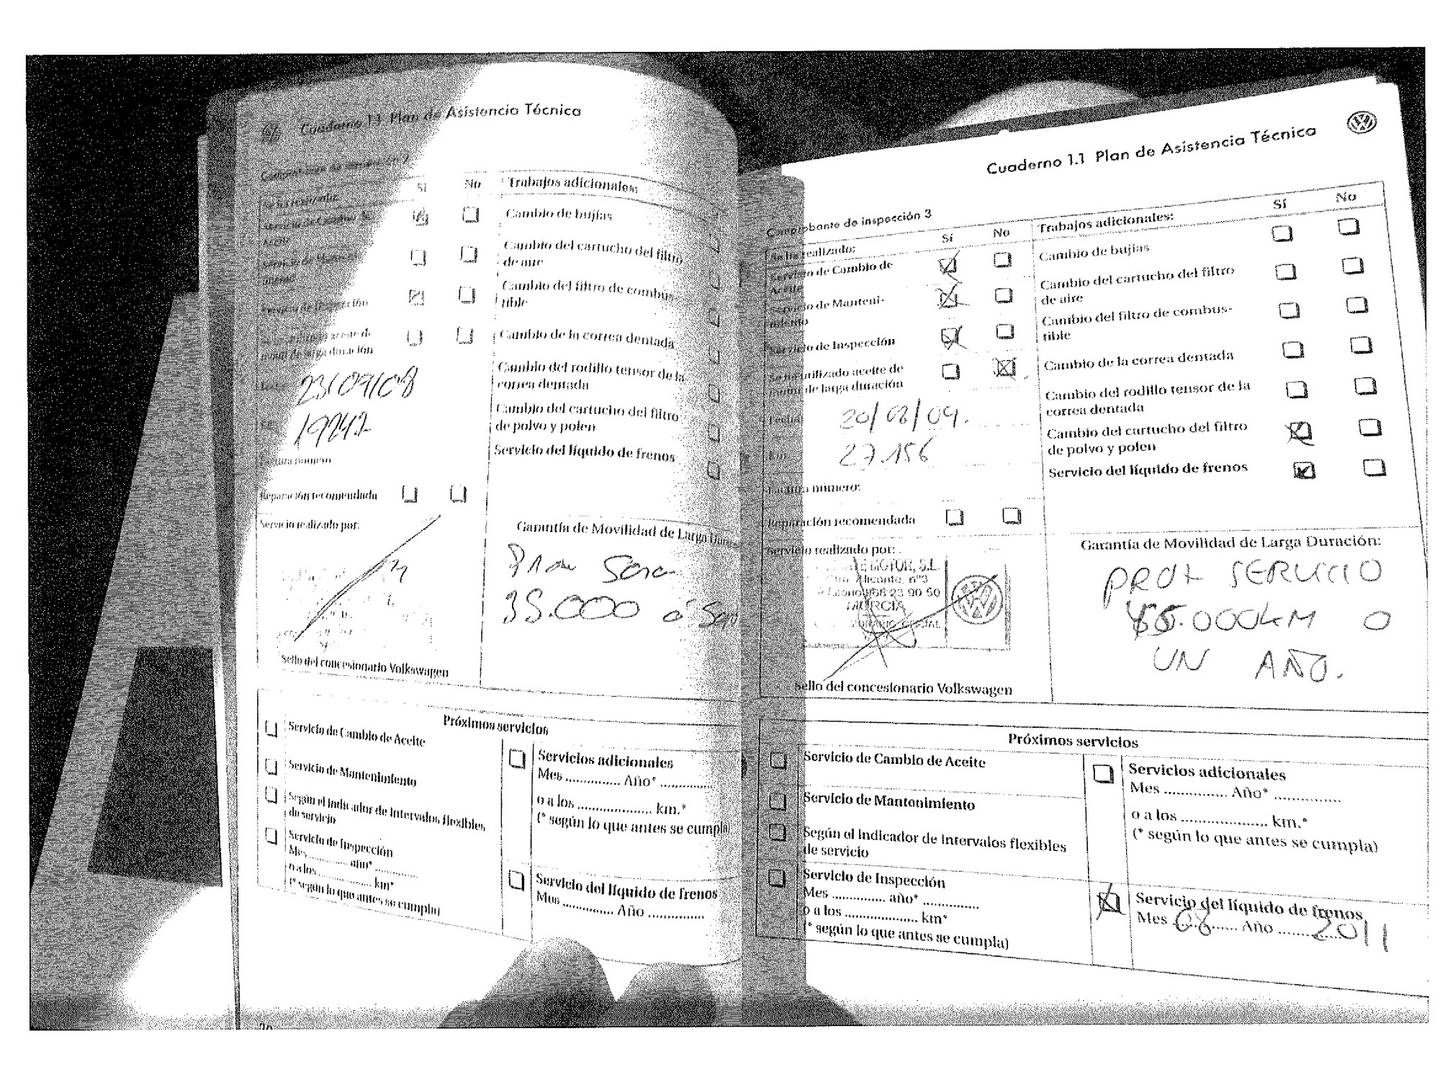 Cuaderno 1.1 Plan de Asistencia Técnica
Sí No
Trabajos adicionales:
Cambio de bujías
Cambio del cartucho del filtro
de aire
Cambio del filtro de combus-
tible
Cambio de la correa dentada
Cambio del rodillo tensor de la
correa dentada
Cambio del cartucho del filtro
de polvo y polen
Servicio del líquido de frenos
motor de larga duración
23/09/08
19242
Reparación recomendada
Servicio realizado por:
Sello del concesionario Volkswagen
Garantía de Movilidad de Larga
35.000 o
Próximos servicios
Servicio de Cambio de Aceite
Servicio de Mantenimiento
Según el indicador de intervalos flexibles
de servicio
Servicio de Inspección
Mes .......... año* ..........
o a los .......... km*
(* según lo que antes se cumpla)
Servicios adicionales
Mes .............. Año* ..............
o a los .................... km.*
(* según lo que antes se cumpla)
Servicio del líquido de frenos
Mes .............. Año ..............
Cuaderno 1.1 Plan de Asistencia Técnica
Comprobante de inspección 3
Se ha realizado:
Sí No
Servicio de Cambio de
Aceite
Servicio de Manteni-
miento
Servicio de Inspección
Se ha utilizado aceite de
motor de larga duración
Fecha
20/08/09.
Km
27.156
Factura número:
Reparación recomendada
Servicio realizado por:
MOTOR, S.L.
Alicante, nº3
MURCIA
Sello del concesionario Volkswagen
Trabajos adicionales:
Sí No
Cambio de bujías
Cambio del cartucho del filtro
de aire
Cambio del filtro de combus-
tible
Cambio de la correa dentada
Cambio del rodillo tensor de la
correa dentada
Cambio del cartucho del filtro
de polvo y polen
Servicio del líquido de frenos
Garantía de Movilidad de Larga Duración:
PROX SERVICIO
000KM O
UN AÑO.
Próximos servicios
Servicio de Cambio de Aceite
Servicio de Mantenimiento
Según el indicador de intervalos flexibles
de servicio
Servicio de Inspección
Mes .............. año* ..............
o a los .................... km*
(* según lo que antes se cumpla)
Servicios adicionales
Mes .............. Año* ..............
o a los .................... km.*
(* según lo que antes se cumpla)
Servicio del líquido de frenos
Mes 08 Año 2011